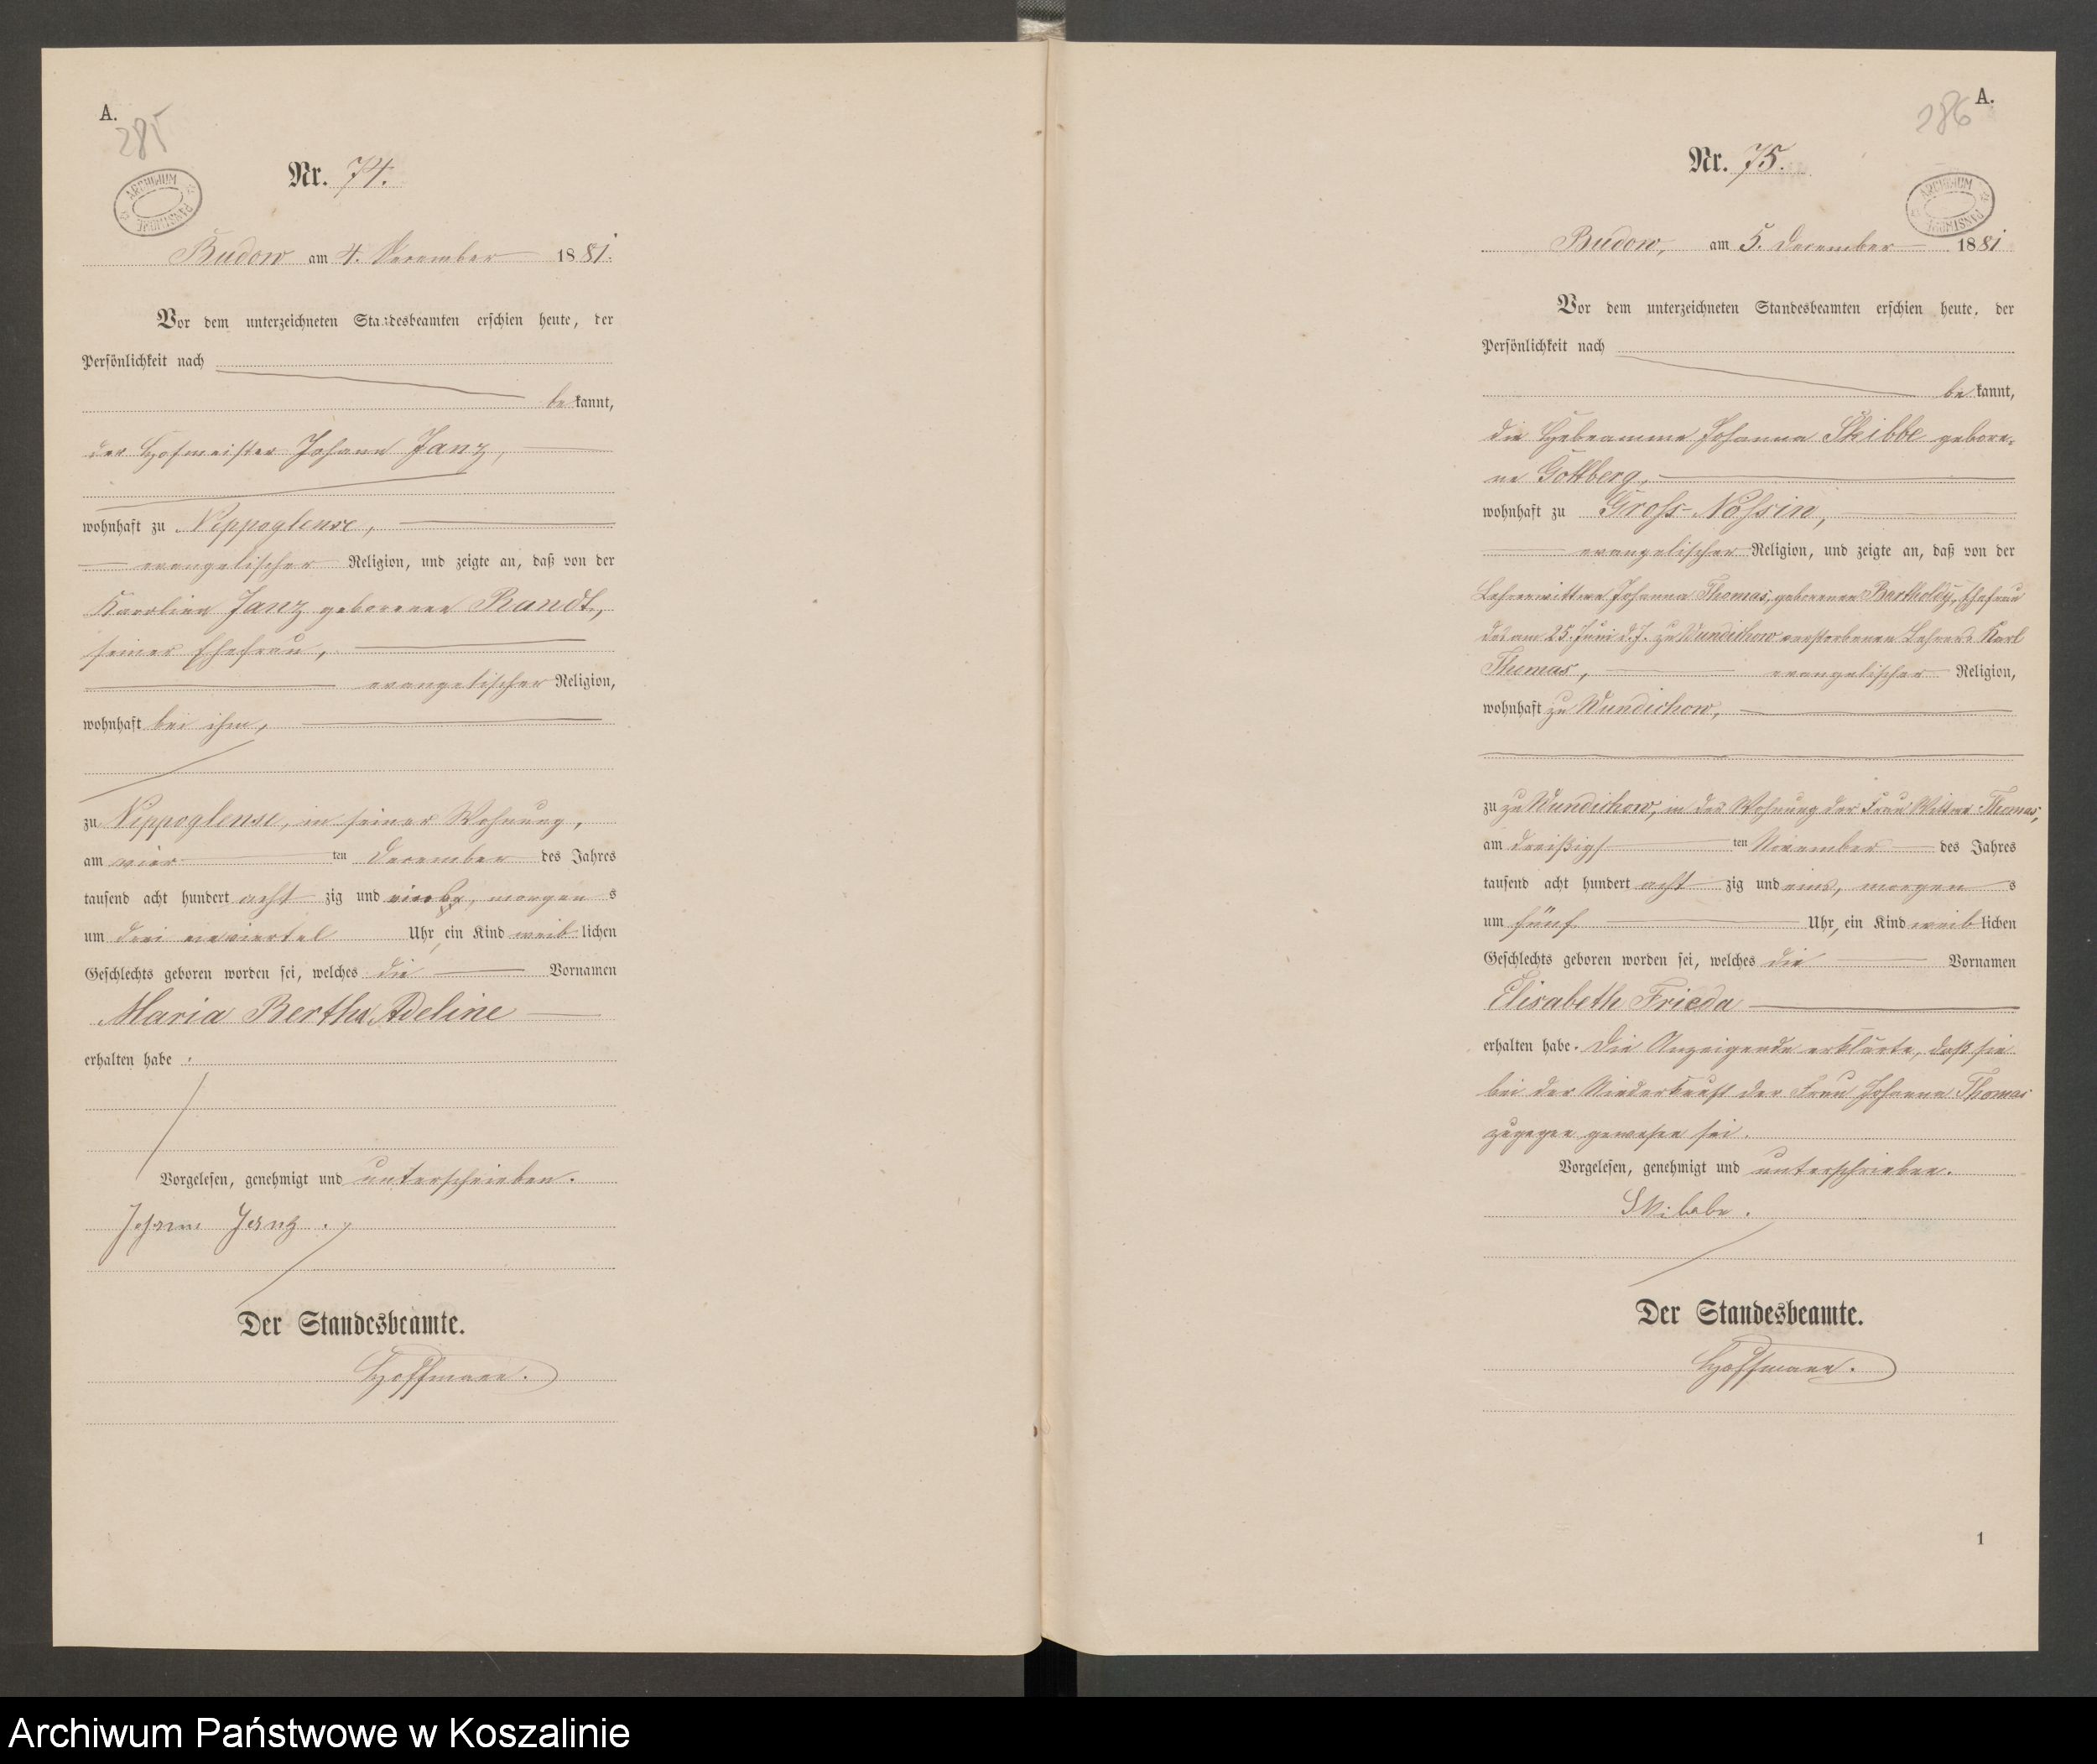 A.
285
Nr. 74.
ARCHIWUM PAŃSTWOWE
Budow am 4. December 1881.
Vor dem unterzeichneten Standesbeamten erschien heute, der
Persönlichkeit nach
bekannt,
der Hofmeister Johann Janz,
wohnhaft zu Nippoglense,
evangelischer Religion, und zeigte an, daß von der
Karoline Janz geborenen Randt,
seiner Ehefrau,
evangelischer Religion,
wohnhaft bei ihm,
zu Nippoglense, in seiner Wohnung,
am vier ten December des Jahres
tausend acht hundert acht zig und morgen s
um drei Uhr, ein Kind weib lichen
Geschlechts geboren worden sei, welches die Vornamen
Maria Bertha Adeline
erhalten habe.
Vorgelesen, genehmigt und unterschrieben.
Johann Janz.
Der Standesbeamte.
Hoffmann.
A.
286
Nr. 75.
ARCHIWUM PAŃSTWOWE
Budow, am 5. December 1881
Vor dem unterzeichneten Standesbeamten erschien heute, der
Persönlichkeit nach
bekannt,
die Hebeamme Johanna Skibbe gebore-
ne Gottberg,
wohnhaft zu Gross-Nossin,
evangelischer Religion, und zeigte an, daß von der
Lehrerwittwe Johanna Thomas, geborenen Bartholdy, Ehefrau
des am 25. Juni d. J. zu Wundichow verstorbenen Lehrers Karl
Thomas, evangelischer Religion,
wohnhaft zu Wundichow,
zu zu Wundichow, in der Wohnung der Frau Wittwe Thomas,
am dreißigs ten November des Jahres
tausend acht hundert acht zig und eins, morgen s
um fünf Uhr, ein Kind weib lichen
Geschlechts geboren worden sei, welches die Vornamen
Elisabeth Frieda
erhalten habe. Die Anzeigende erklärte, daß sie
bei der Niederkunft der Frau Johanna Thomas
zugegen gewesen sei.
Vorgelesen, genehmigt und unterschrieben.
Skibbe.
Der Standesbeamte.
Hoffmann.
1
Archiwum Państwowe w Koszalinie